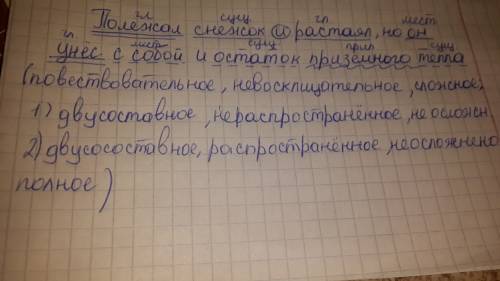 гл сущ гл мест
Полежал снежок и растаял, но он
гл мест сущ прил сущ
унёс с собой и остаток приземного тепла
(повествовательное, невосклицательное, сложное;
1) двусоставное, нераспространённое, не осложн
2) двусосоставное, распространённое, неосложнено
полное)